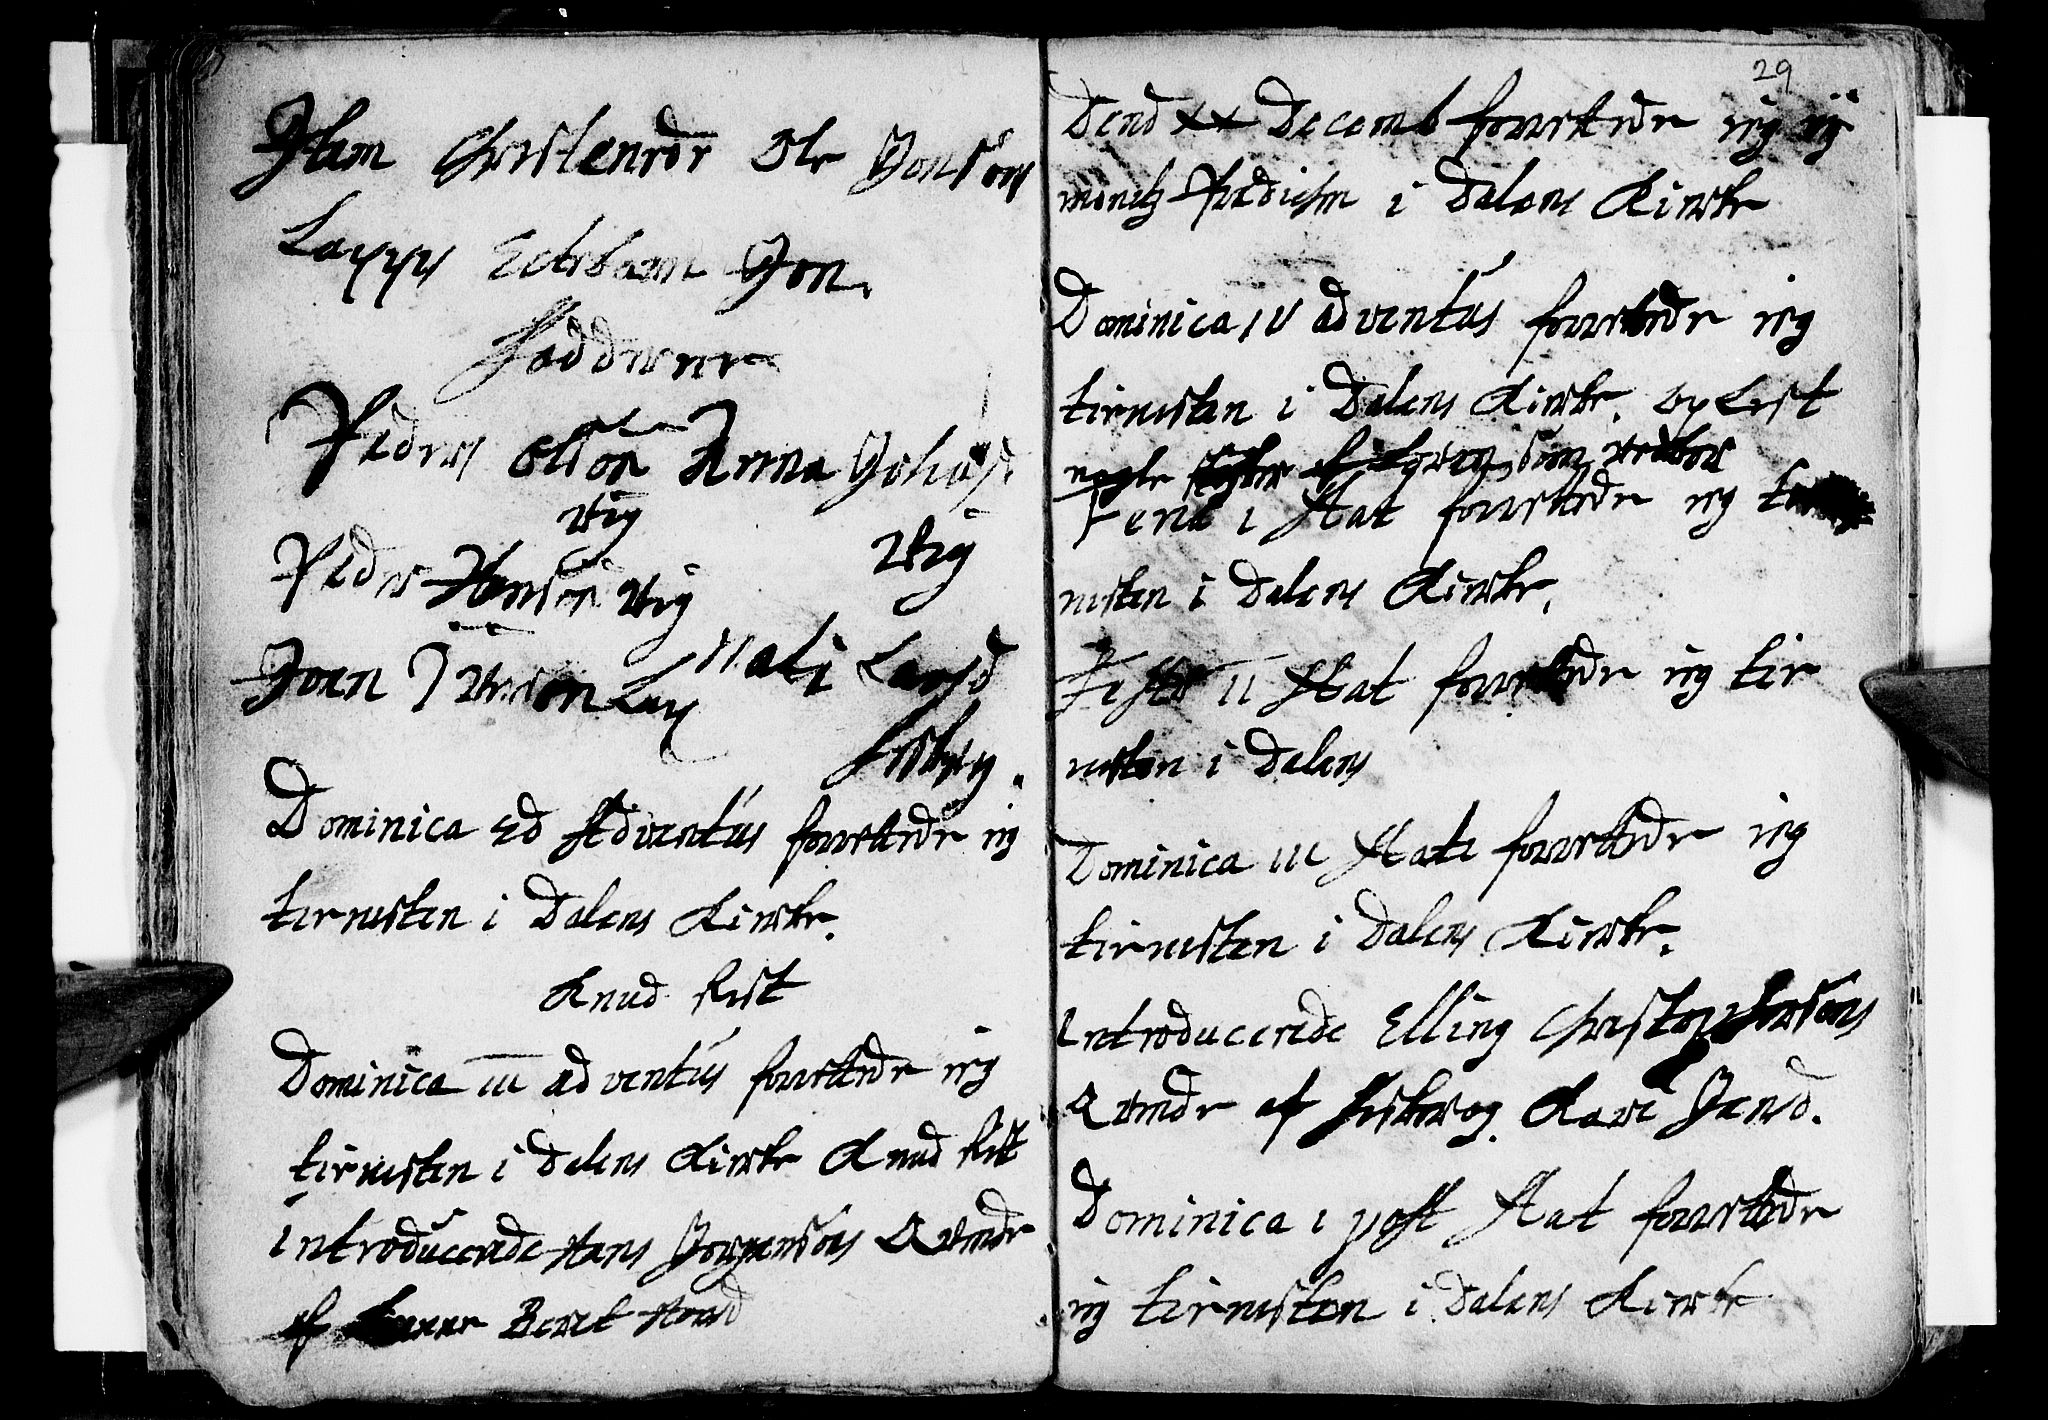 Item Christenede Ole Jonsøns
Lapps Ectebarn Jon.
Faddrene
Peders Olsøn Anna Johansd.
Wiig
Wiig
Peder Hansøn Wiig
Joen Iversøn Lap Mali Larsd
Leskrog.
Dominica 2d Adventus forrettede ieg
tienesten i Dalens Kircke.
Knud Rist
Dominica III adventus forrettede ieg
tienesten i Dalens Kircke Knud Rist
introducerede Hans Jørgensøns Qvinde
af Beret Hansd
29
Dend xx Decemb forrettede ieg
Prædichen i Dalens Kircke
Dominica IV adventus forrettede ieg
tienesten i Dalens Kircke. oplest
nogle
Feria 1 Nat forrettede ieg tie
nesten i Dalens Kircke.
Festo II Nat forrettede ieg tie
nesten i Dalens
Dominica III Nati forrettede ieg
tienesten i Dalens Kircke.
Introducerede Elling Christophersøns
Qvinde af Leskrog. Kari Jensd.
Dominica 1 post Nat forrettede
ieg tienesten i Dalens Kircke